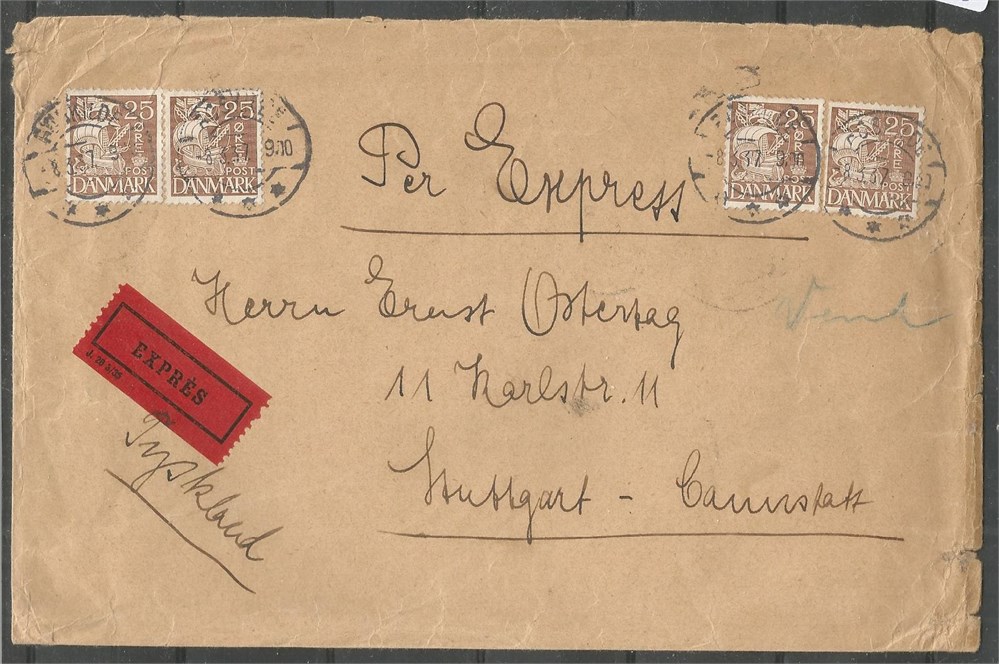 25 ØRE POST DANMARK
25 ØRE POST DANMARK
25 ØRE POST DANMARK
25 ØRE POST DANMARK
9.10
9.10
Per Express
Herrn Ernst Ostertag
11 Karlstr. 11
Stuttgart - Cannstatt
EXPRÈS
Tyskland